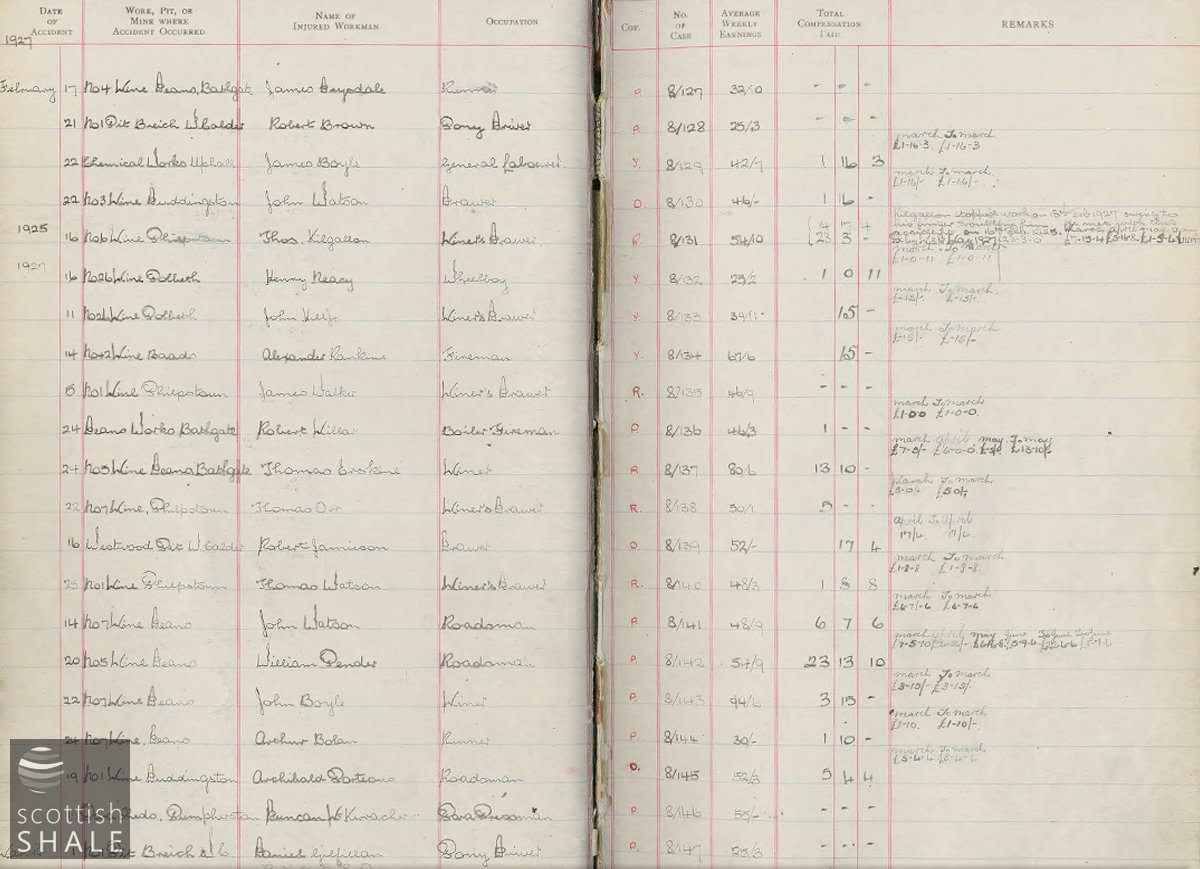 DATE OF ACCIDENT WORK, PIT, OR MINE WHERE ACCIDENT OCCURRED NAME OF INJURED WORKMAN OCCUPATION COV. NO. OF CASE AVERAGE WEEKLY EARNINGS TOTAL COMPENSATION PAID REMARKS
1927
February 17 No4 Mine Deans, Bathgate James Drysdale Runner P. 8/127 32/0 - - -
21 No1 Pit Breich W Calder Robert Brown Pony Driver P. 8/128 25/3 - - -
March To March
£1-16-3 £1-16-3
22 Chemical Works Uphall James Boyle General Labourer Y. 8/129 42/7 1 16 3
March To March
£1-16/- £1-16/-
22 No3 Mine Duddingston John Watson Drawer D. 8/130 46/- 1 16 -
Kilgallon stopped work on 15th Feb 1927 owing to
1925
16 No6 Mine Philpstoun Thos. Kilgallon Miner's Drawer R. 8/131 54/10 14 17 4
23 3 -
March To March
£1-0-11 £1-0-11
1927
16 No26 Mine Polbeth Henny Neary Wheelboy Y. 8/132 25/2 1 0 11
March To March
£-15/- £-15/-
11 No26 Mine Polbeth John Miner's Drawer Y. 8/133 15 -
March To March
£-15/- £-15/-
14 No42 Mine Baads Alexander Rankine Fireman Y. 8/134 67/6 15 -
5 No1 Mine Philpstoun James Walker Miner's Drawer R. 8/135 46/9 - - -
March To March
£1-0-0 £1-0-0
24 Deans Works Bathgate Robert Millar Boiler Fireman P. 8/136 46/3 1 - -
March April May To May
£13-10/-
24 No5 Mine Deans, Bathgate Thomas Erskine Miner P. 8/137 80/6 13 10 -
March To March
£5-0/- £5-0/-
22 No7 Mine, Philpstoun Thomas Orr Miner's Drawer R. 8/138 50/1 5 - -
April To April
17/4 17/4
16 Westwood Pit W Calder Robert Jamieson Drawer D. 8/139 52/- 17 4
March To March
£1-8-8 £1-8-8
25 No1 Mine Philpstoun Thomas Watson Miner's Drawer R. 8/140 48/3 1 8 8
March To March
£6-7-6 £6-7-6
14 No7 Mine Deans John Watson Roadsman P. 8/141 48/9 6 7 6
March May June To June
20 No5 Mine Deans William Pender Roadsman P. 8/142 54/9 23 13 10
March To March
£3-15/- £3-15/-
22 No7 Mine Deans John Boyle Miner P. 8/143 94/6 3 15 -
March To March
£1-10. £1-10/-
24 No7 Mine, Deans Arthur Bolan Runner P. 8/144 30/- 1 10 -
March To March
£5-4-4 £5-4-4
19 No1 Mine Duddingston Archibald Porteous Roadsman D. 8/145 52/3 5 4 4
Pumpherston Duncan McKerracher Pressman P. 8/146 55/- - - -
Pit Breich Daniel Gilfillan Pony Driver P. 8/147 25/3 - - -
scottish
SHALE